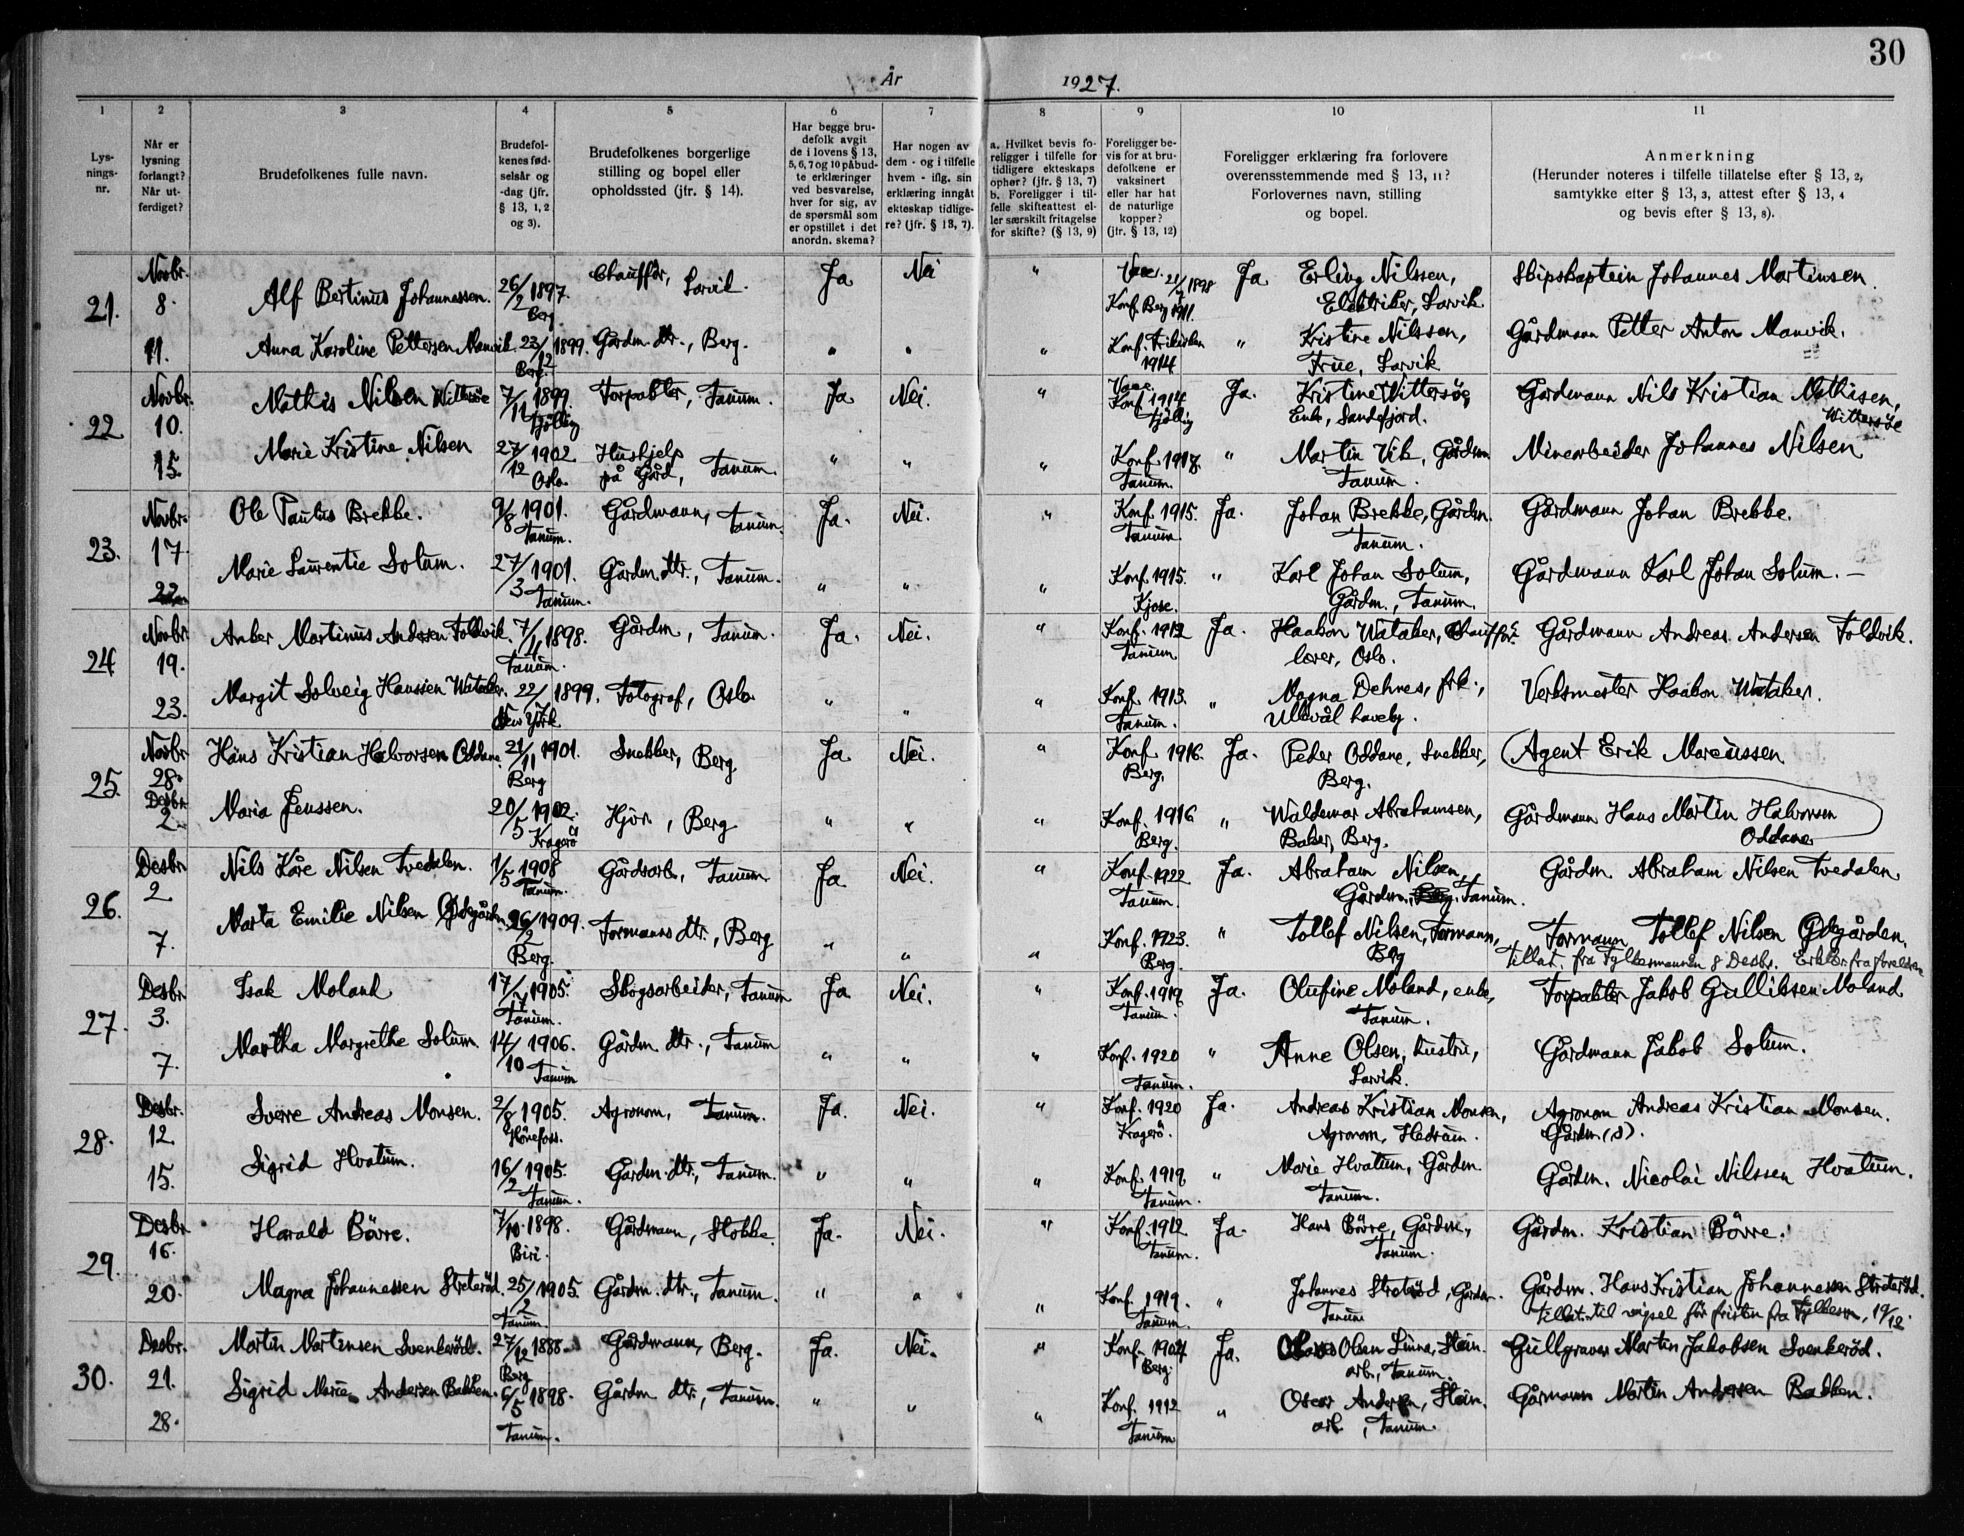 30
År 1927.
1 2 3 4 5 6 7 8 9 10 11
Lys-
nings-
nr.
Når er
lysning
forlangt?
Når ut-
ferdiget?
Brudefolkenes fulle navn.
Brudefol-
kenes fød-
selsår og
-dag (jfr.
§ 13, 1, 2
og 3).
Brudefolkenes borgerlige
stilling og bopel eller
opholdssted (jfr. § 14).
Har begge bru-
defolk avgit
de i lovens § 13,
5, 6, 7 og 10 påbud-
te erklæringer
ved besvarelse,
hver for sig, av
de spørsmål som
er opstillet i det
anordn. skema?
Har nogen av
dem - og i tilfelle
hvem - iflg. sin
erklæring inngått
ekteskap tidlige-
re? (jfr. § 13, 7).
a. Hvilket bevis fo-
religger i tilfelle for
tidligere ekteskaps
ophør? (jfr. § 13, 7)
b. Foreligger i til-
felle skifteattest el-
ler særskilt fritagelse
for skifte? (§ 13, 9)
Foreligger be-
vis for at bru-
defolkene er
vaksinert
eller har hat
de naturlige
kopper?
(jfr. § 13, 12)
Foreligger erklæring fra forlovere
overensstemmende med § 13, 11?
Forlovernes navn, stilling
og bopel.
Anmerkning
(Herunder noteres i tilfelle tillatelse efter § 13, 2,
samtykke efter § 13, 3, attest efter § 13, 4
og bevis efter § 13, 8).
21. Novbr. 8. Alf Bertinus Johannessen. 26/2 1897. Berg Chauffør, Larvik. Ja Nei " Vacc. 1898 Konf. Berg 1911. Ja Erling Nilssen, Elektriker, Larvik Skipskaptein Johannes Martinsen.
11. Anna Karoline Pettersen Manvik 23/12 1899. Berg. Gårdm. dtr., Berg. " " " Konf. Frikirken 1914 " Kristine Nilssen, Frue, Larvik Gårdmann Petter Anton Manvik.
22 Novbr. 10. Mathis Nilsen Wittersøe 7/11 1899. Tjølling Forpakter, Tanum. Ja Nei. " Vacc. Konf. 1914 Tjølling Ja. Kristine Wittersøe, Enke, Sandefjord. Gårdmann Nils Kristian Mathisen, Wittersøe
15. Marie Kristine Nilsen 27/12 1902. Oslo. Hushjelp på Gård, Tanum. " " " Konf. 1917. Tanum. " Martin Vik, Gårdm. Tanum. Minearbeider Johannes Nilsen
23. Novbr. 17. Ole Paulus Brekke. 9/8 1901. Tanum. Gårdmann, Tanum. Ja. Nei. " Konf. 1915. Tanum. Ja. Johan Brekke, Gårdm. Tanum. Gårdmann Johan Brekke.
22. Marie Laurentie Solum. 27/3 1901. Tanum. Gårdm. dtr., Tanum. " " " Konf. 1915. Kjose. " Karl Johan Solum, Gårdm., Tanum. Gårdmann Karl Johan Solum. —
24 Novbr. 19. Anker Martinus Andersen Foldvik. 7/11 1898. Tanum. Gårdm, Tanum. Ja. Nei. " Konf. 1912 Tanum Ja. Haakon Wataker, Chauffør- lærer, Oslo. Gårdmann Andreas Andersen Foldvik.
23. Margit Solveig Hanssen Wataker. 22/7 1899. New York Fotograf, Oslo. " " " Konf. 1913. Tanum. " Magna Dehnes, frk., Ullevål haveby. Verksmester Haakon Wataker.
25. Novbr 28. Hans Kristian Halvorsen Oddane. 21/11 1901. Berg Snekker, Berg. Ja Nei. " Konf 1916. Berg. Ja. Peder Oddane, Snekker, Berg. Agent Erik Marcussen
Desbr. 2. Maria Jenssen. 20/5 1902. Kragerø Hjvr., Berg " " " Konf. 1916 Berg. " Waldemar Abrahamsen, Baker, Berg. Gårdmann Hans Martin Halvorsen Oddane
26. Desbr. 2 Nils Kåre Nilsen Tvedalen. 1/5 1908 Tanum. Gårdsarb., Tanum. Ja Nei. " Konf. 1922 Tanum. Ja. Abraham Nilsen, Gårdm., Berg. Tanum. Gårdm. Abraham Nilsen Tvedalen
7. Marta Emilie Nilsen Ødegården. 26/2 1909. Berg. Formanns dtr., Berg " " " Konf. 1923. Berg. " Tollef Nilsen, Formann, Berg Formann Tollef Nilsen Ødegården. Tillat. fra Fylkesmannen 8 Desbr. Erklær. fra foreldrene
27. Desbr. 3. Isak Moland 17/7 1905. Tanum. Skogsarbeider, Tanum Ja Nei. " Konf. 1919 Tanum. Ja. Olufine Moland, enke, Tanum. Forpakter Jakob Gulliksen Moland
7. Martha Margrethe Solum 14/10 1906. Tanum Gårdm. dtr., Tanum " " " Konf. 1920 Tanum. " Anne Olsen, hustru, Larvik. Gårdmann Jakob Solum.
28. Desbr. 12. Sverre Andreas Monsen. 2/8 1905. Hønefoss. Agronom, Tanum. Ja. Nei. " Konf. 1920 Kragerø. Ja. Andreas Kristian Monsen, Agronom, Hedrum. Agronom Andreas Kristian Monsen. Gårdm. (d).
15. Sigrid Hvatum. 16/2 1905. Tanum. Gårdm. dtr., Tanum. " " " Konf. 1919 Tanum. " Marie Hvatum, Gårdm. Tanum. Gårdm. Nicolai Nilssen Hvatum.
29. Desbr. 16. Harald Bövre. 7/10 1898. Biri. Gårdmann, Stokke. Ja. Nei. " Konf. 1912 Tanum. Ja. Hans Bövre, Gårdm., Tanum. Gårdm. Kristian Bövre.
20. Magna Johannessen Streterød. 25/2 1905. Tanum. Gårdm. dtr., Tanum. " " " Konf. 1919. Tanum. " Johannes Stretød, Gårdm. Tanum Gårdm. Hans Kristian Johannessen Streterød. Tillat. til vigsel før fristen fra Fylkesm. 19/12.
30. Desbr. 21. Martin Martinsen Svenkerød. 27/12 1888. Berg Gårdmann, Berg. Ja. Nei. " Konf. 1904 Berg. Ja. Olsen Linna, Stein. arb., Tanum. Gullgraver Martin Jakobsen Svenkerød.
28. Sigrid Marie Andersen Bakken. 6/5 1898. Tanum. Gårdm. dtr., Tanum. " " " Konf. 1912 Tanum " Oscar Andersen, Stein. arb., Tanum. Gårmann Martin Andersen Bakken.